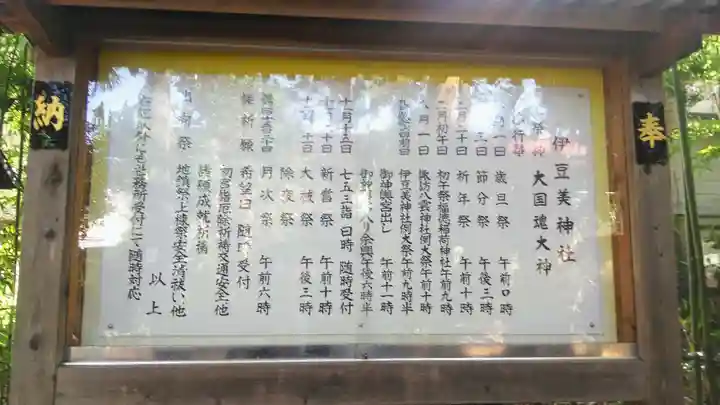 奉
納
伊豆美神社
祭神 大国魂大神
行事
一月一日 歳旦祭 午前〇時
二月三日 節分祭 午後三時
二月二十日 祈年祭 午前十時
二月初午日 初午祭福徳稲荷神社午前九時
八月一日 諏訪八雲神社例大祭午前十時
伊豆美神社例大祭午前九時半
御神輿宮出し 午前十一時
余興午後六時半
十一月十五日 七五三詣 日時 随時受付
新嘗祭 午前十時
大祓祭 午後三時
除夜祭
月次祭 午前六時
祈願 希望日 随時受付
初宮詣厄除祈祷交通安全他
諸願成就祈祷
出向祭 地鎮祭上棟祭安全清祓い他
社務所受付にて随時対応
以上